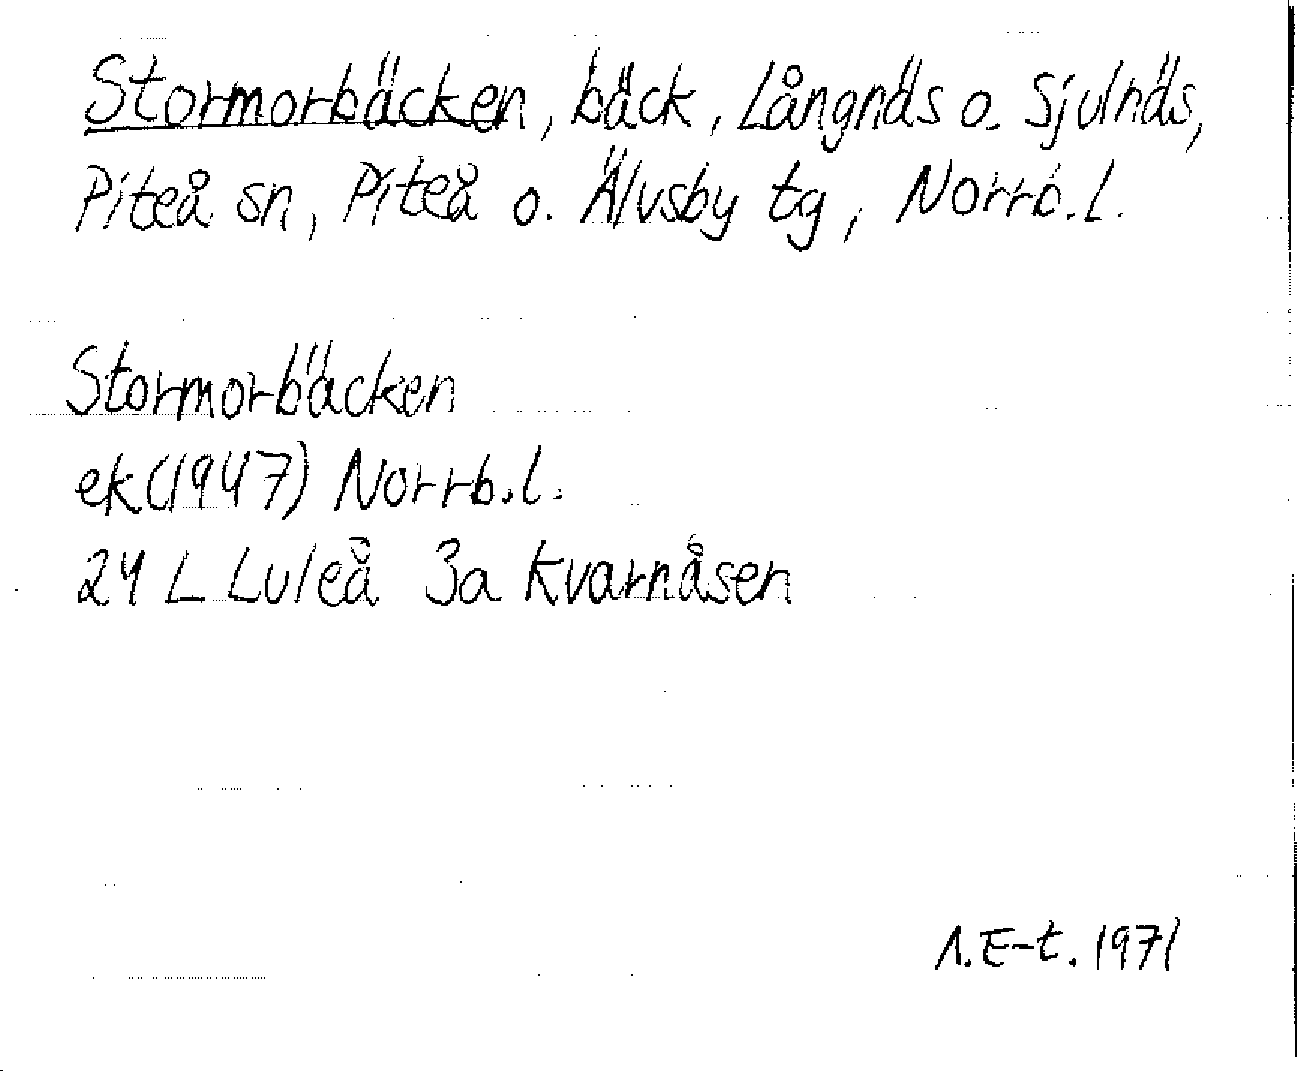 Stormorbäcken, bäck, Långnäs o. Sjulnäs,
Piteå sn, Piteå o. Älvsby tg, Norrb.l.
Stormorbäcken
ek(1947) Norrb.l.
24 L Luleå 3a Kvarnåsen
1971